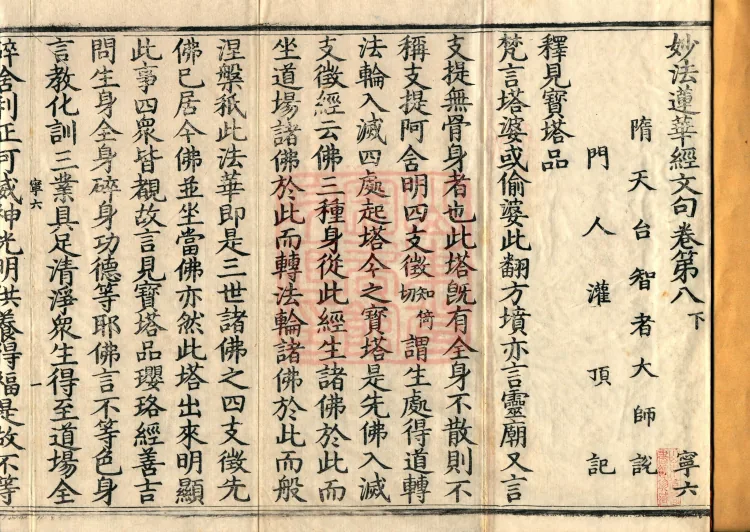 妙法蓮華經文句卷第八下 寧六
隋天台智者大師說
門人灌頂記
釋見寶塔品
梵言塔婆或偷婆此翻方墳亦言靈廟又言
支提無骨身者也此塔既有全身不散則不
稱支提阿含明四支徵知倚切謂生處得道轉
法輪入滅四處起塔今之寶塔是先佛入滅
支徵經云佛三種身從此經生諸佛於此而
坐道場諸佛於此而轉法輪諸佛於此而般
涅槃秖此法華即是三世諸佛之四支徵先
佛已居今佛並坐當佛亦然此塔出來明顯
此事四眾皆覩故言見寶塔品瓔珞經善吉
問生身全身碎身功德等耶佛言不等色身
言教化訓三業具足清淨眾生得至道場全
寧六 一
碎舍利正可威神光明供養得福是故不等